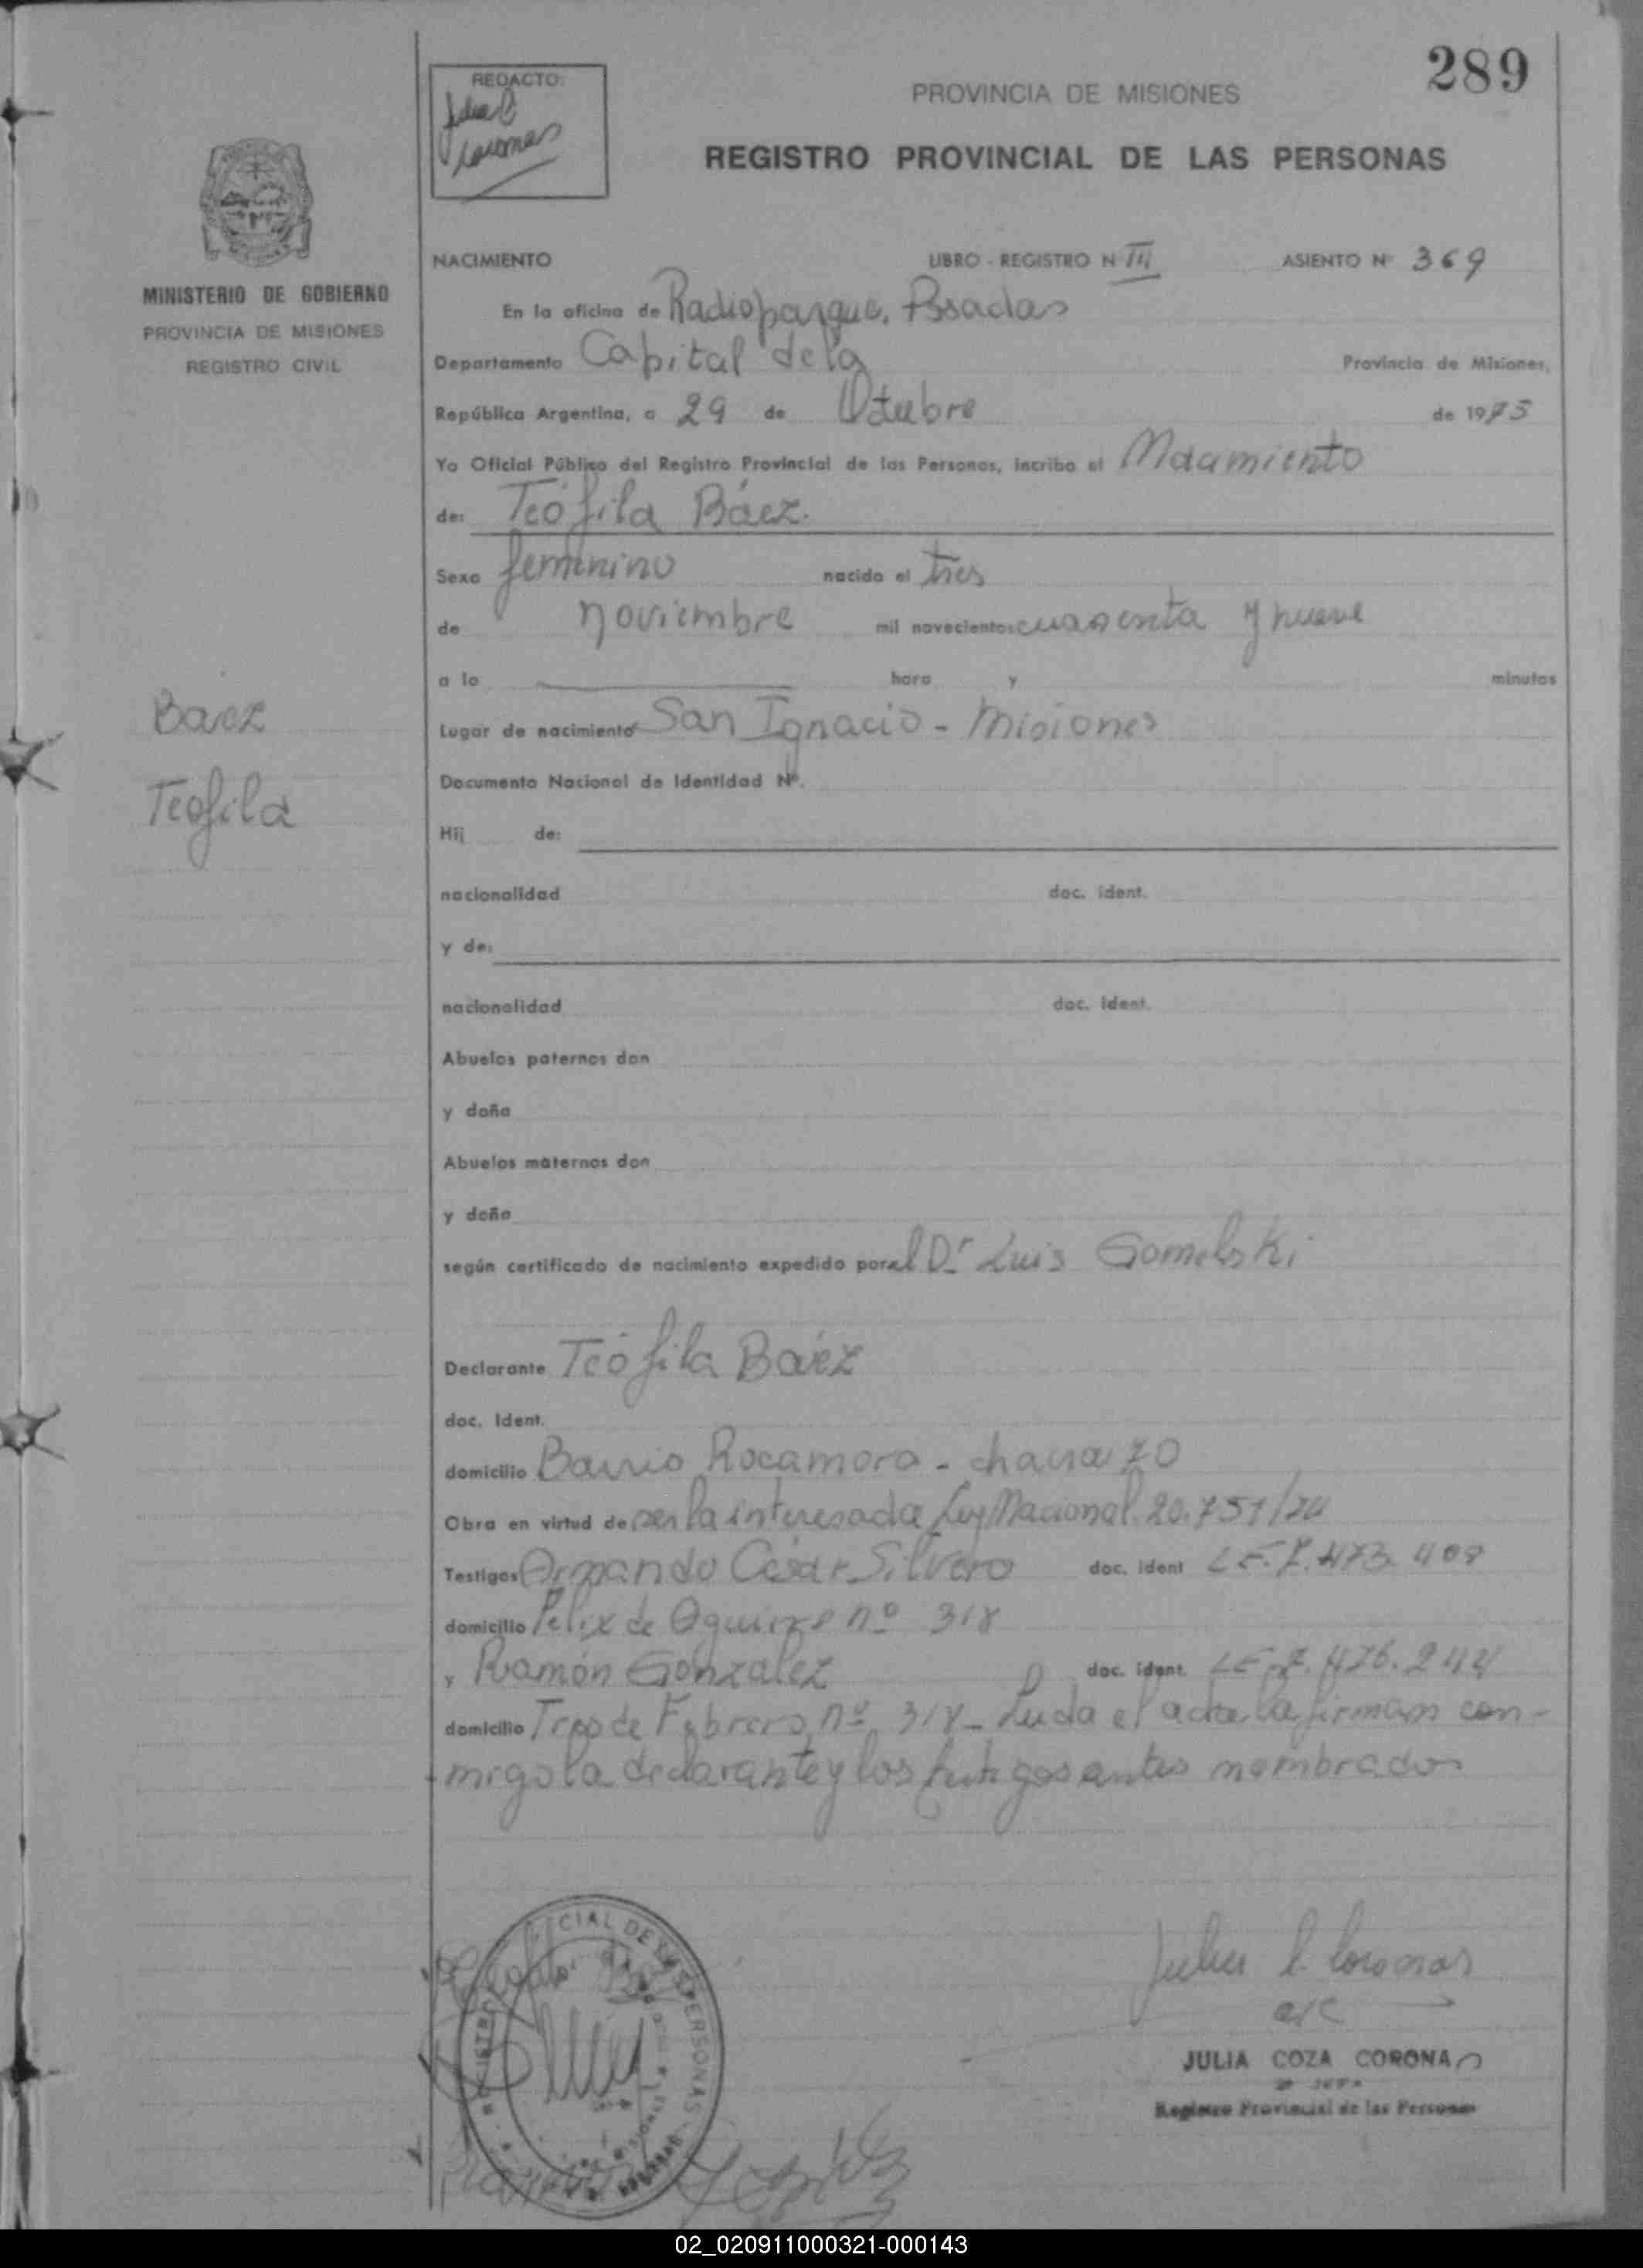 289
REDACTO:
Julia C
Coronas
PROVINCIA DE MISIONES
REGISTRO PROVINCIAL DE LAS PERSONAS
MINISTERIO DE GOBIERNO
PROVINCIA DE MISIONES
REGISTRO CIVIL
NACIMIENTO LIBRO - REGISTRO N III ASIENTO Nº 369
En la oficina de Radioparque. Posadas
Departamento Capital de la Provincia de Misiones,
República Argentina, a 29 de Octubre de 1975
Yo Oficial Público del Registro Provincial de las Personas, inscribo el Nacimiento
de: Teófila Báez.
Sexo femenino nacido el tres
de noviembre mil novecientos cuarenta y nueve
a la hora y minutos
Baez
Teofila
Lugar de nacimiento San Ignacio - Misiones
Documento Nacional de Identidad Nº.
Hij de:
nacionalidad doc. ident.
y de:
nacionalidad doc. ident.
Abuelos paternos don
y doña
Abuelos maternos don
y doña
según certificado de nacimiento expedido por el Dr Luis Gomelski
Declarante Teófila Báez
doc. Ident.
domicilio Barrio Rocamora - chacra 70
Obra en virtud de ser la interesada Ley Nacional. 20.751/74
Testigos Armando César Silvero doc. ident L.E.7.473.409
domicilio Felix de Aguirre nº 318
y Ramón Gonzalez doc. ident. L.E.7.476.244
domicilio Tres de Febrero, nº 318 - Leida el acta la firman con-
migo la declarante y los testigos antes nombrados
Julia C. Coronas
a/c
JULIA COZA CORONAS
JEFA
Registro Provincial de las Personas
02_020911000321-000143